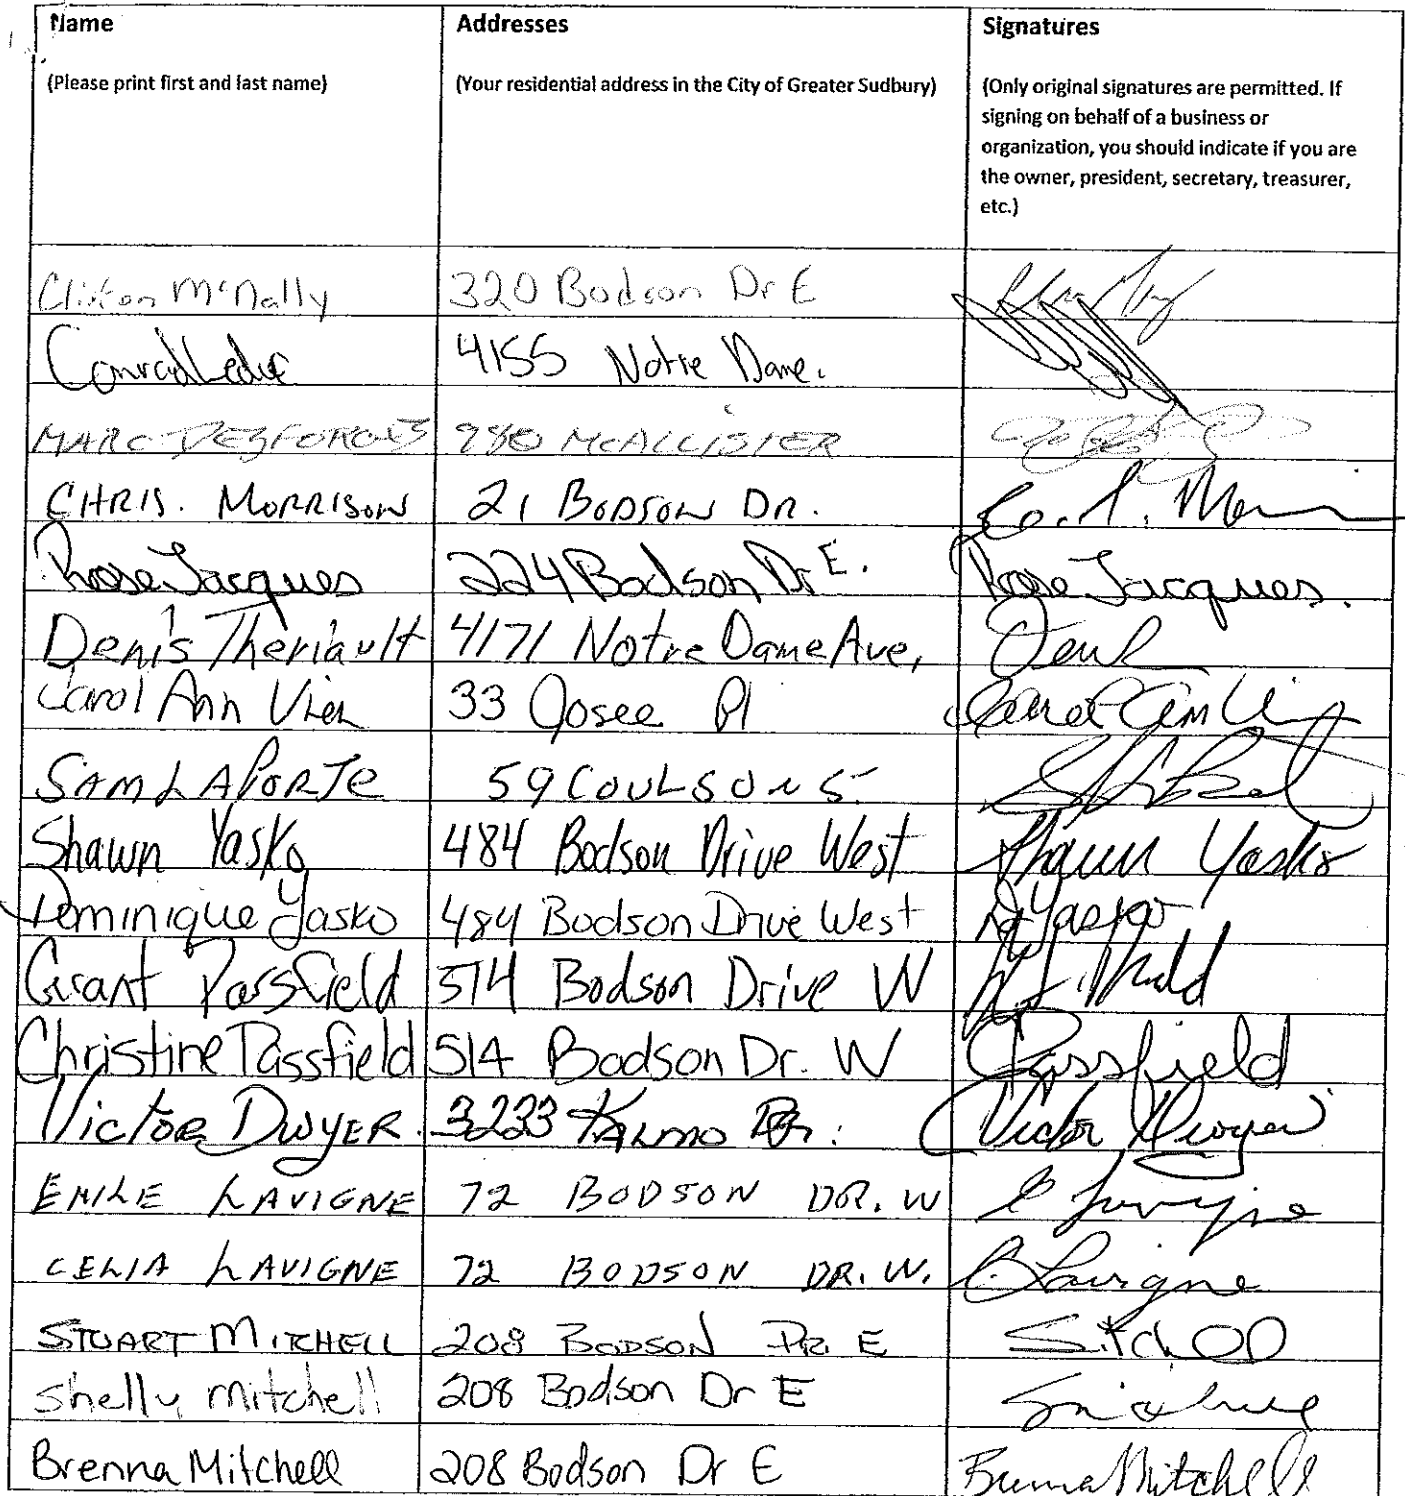 Name Addresses Signatures
(Please print first and last name) (Your residential address in the City of Greater Sudbury) (Only original signatures are permitted. If
signing on behalf of a business or
organization, you should indicate if you are
the owner, president, secretary, treasurer,
etc.)
Clinton McNally 320 Bodson Dr E
Conrad Leduc 4155 Notre Dame.
MARC DESFORGES 980 MCALLISTER
CHRIS. MORRISON 21 BODSON DR.
Rose Jacques 224 Bodson Dr E. Rose Jacques.
Denis Theriault 4171 Notre Dame Ave,
Carol Ann Vien 33 Josee Pl
SAM LAPORTE 59 COULSON S
Shawn Yasko 484 Bodson Drive West Shawn Yasko
Dominique Yasko 484 Bodson Drive West D Yasko
Grant Passfield 514 Bodson Drive W
Christine Passfield 514 Bodson Dr. W CPassfield
Victor Dwyer. 3233 Kalmo Dr. Victor Dwyer
EMILE LAVIGNE 72 BODSON DR. W E Lavigne
CELIA LAVIGNE 72 BODSON DR. W. C. Lavigne
STUART MITCHELL 208 BODSON DR. E
Shelly Mitchell 208 Bodson Dr E
Brenna Mitchell 208 Bodson Dr E Brenna Mitchell